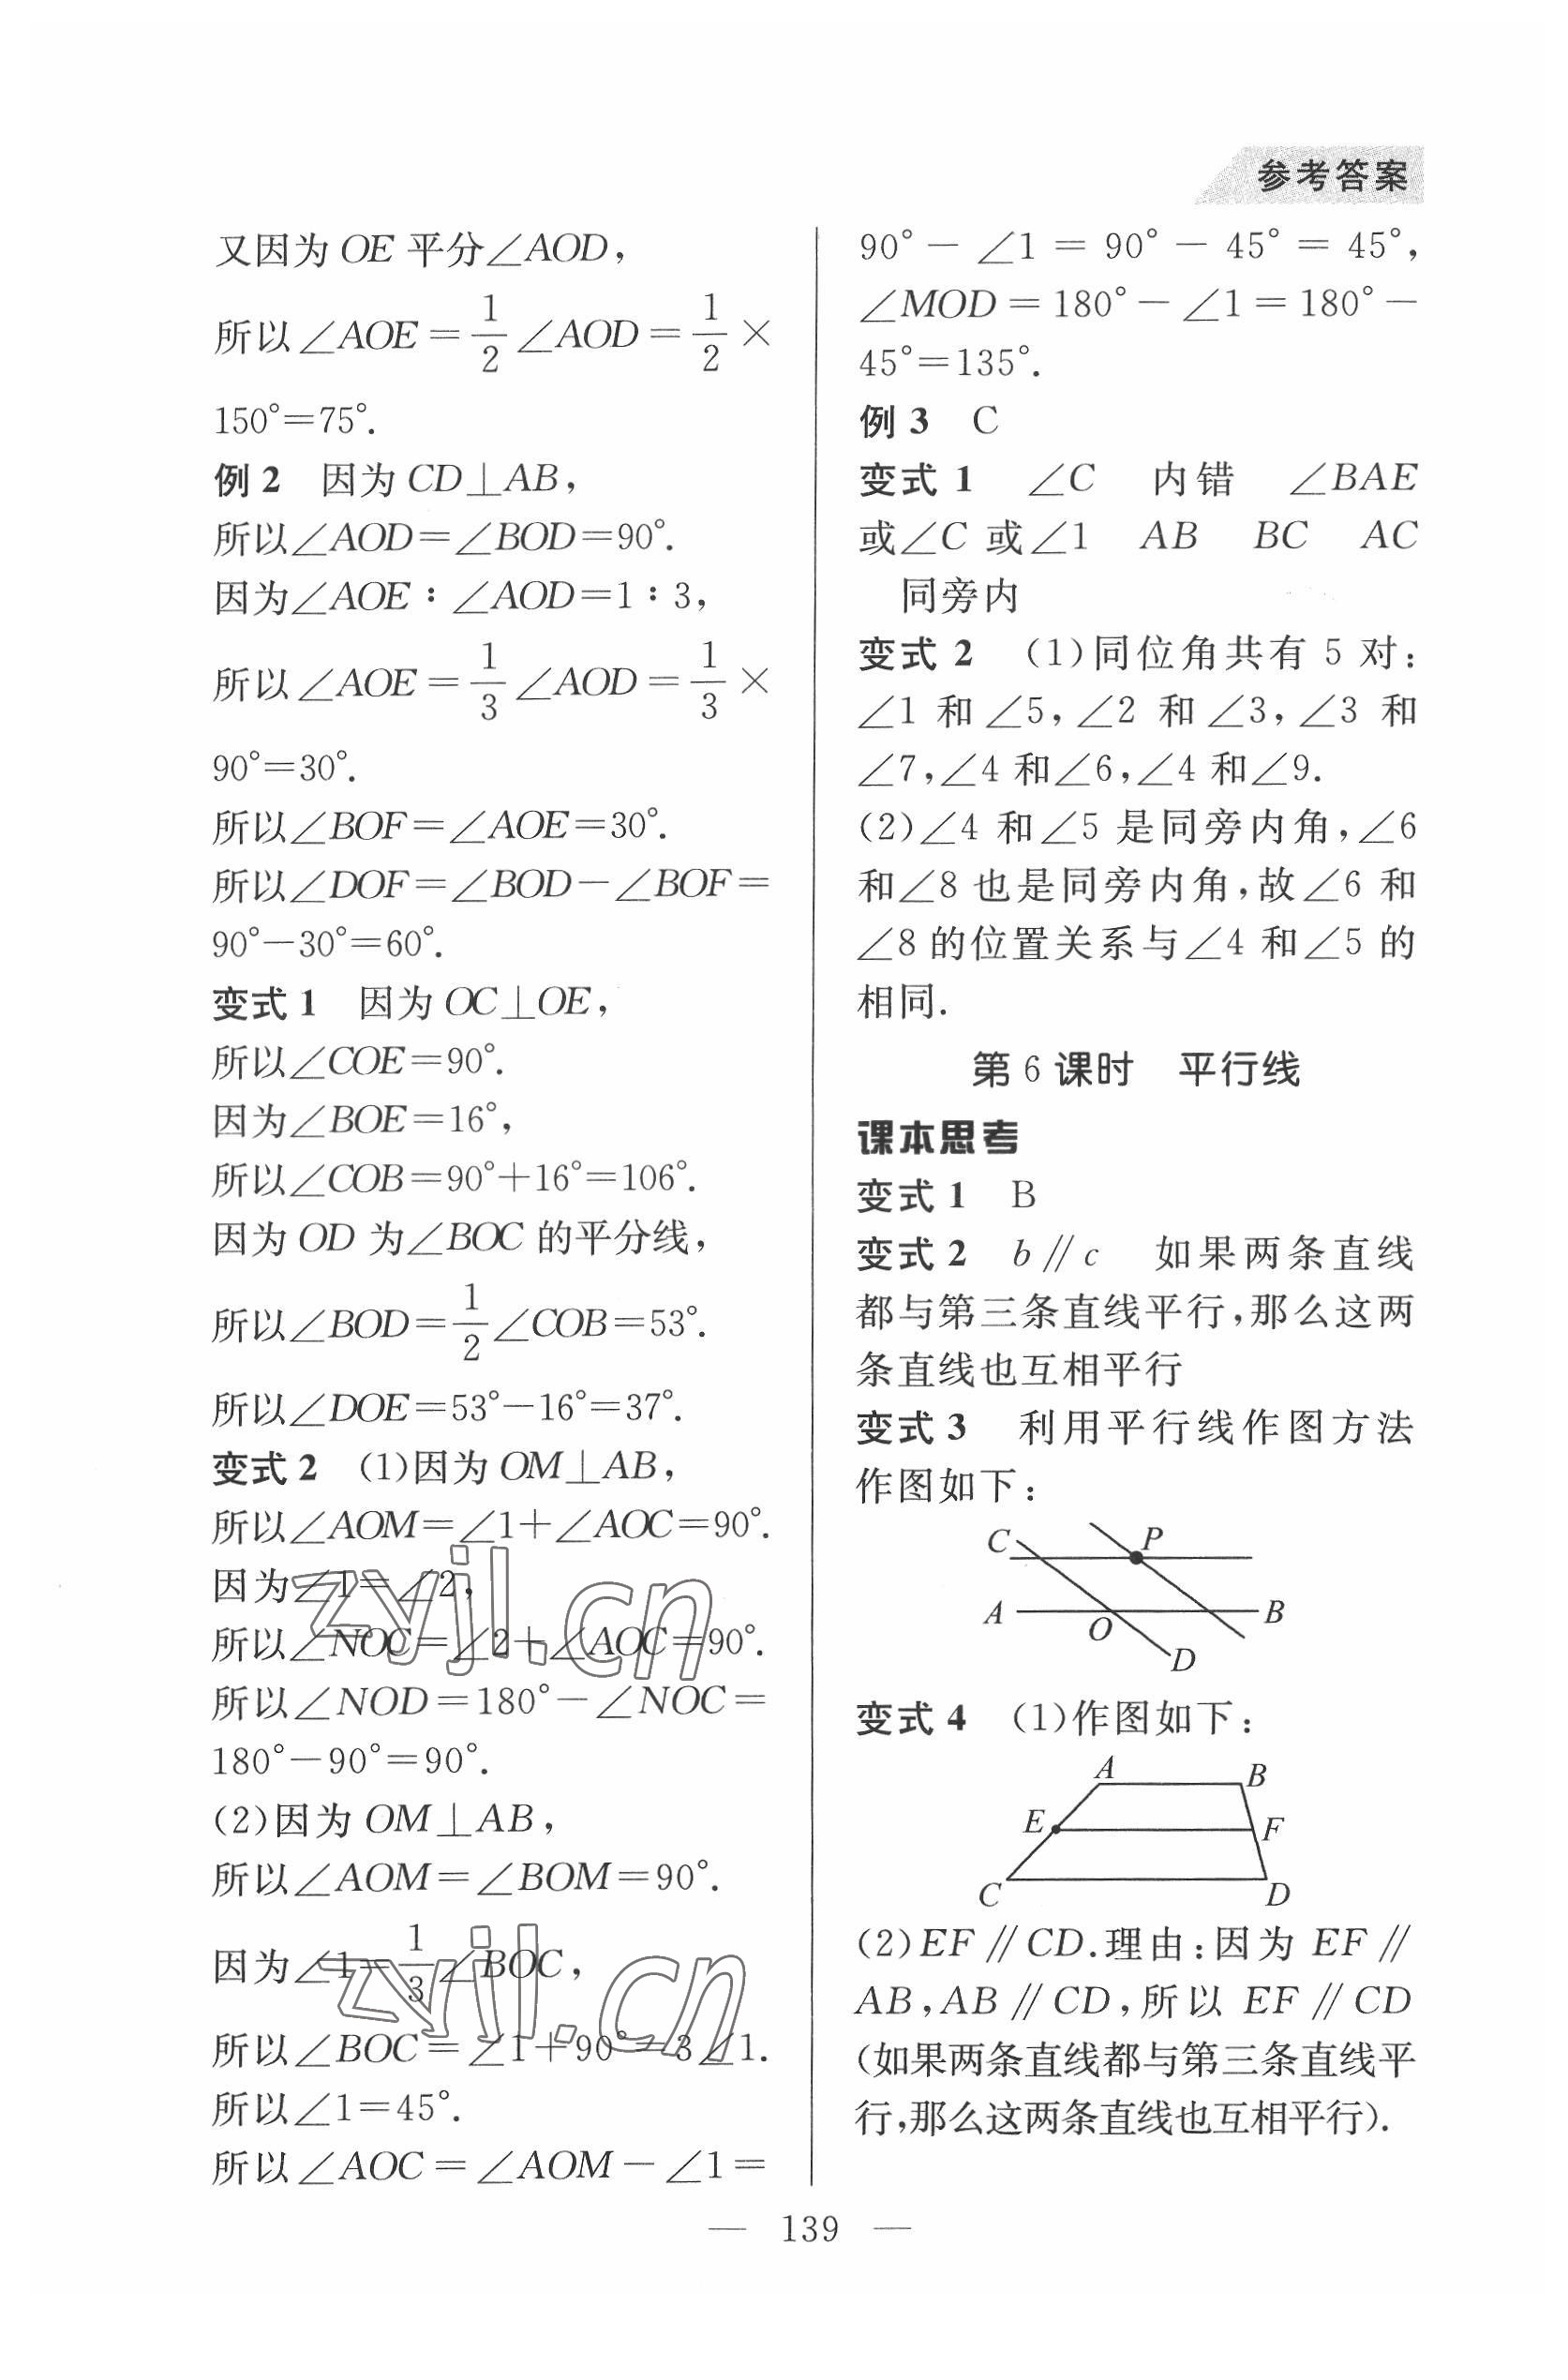 参考答案
又因为 OE 平分∠AOD，
所以∠AOE＝1/2∠AOD＝1/2×
150°＝75°.
例 2　因为 CD⊥AB，
所以∠AOD＝∠BOD＝90°.
因为∠AOE∶∠AOD＝1∶3，
所以∠AOE＝1/3∠AOD＝1/3×
90°＝30°.
所以∠BOF＝∠AOE＝30°.
所以∠DOF＝∠BOD－∠BOF＝
90°－30°＝60°.
变式 1　因为 OC⊥OE，
所以∠COE＝90°.
因为∠BOE＝16°，
所以∠COB＝90°＋16°＝106°.
因为 OD 为∠BOC 的平分线，
所以∠BOD＝1/2∠COB＝53°.
所以∠DOE＝53°－16°＝37°.
变式 2　(1)因为 OM⊥AB，
所以∠AOM＝∠1＋∠AOC＝90°.
因为∠1＝∠2，
所以∠NOC＝∠2＋∠AOC＝90°.
所以∠NOD＝180°－∠NOC＝
180°－90°＝90°.
(2)因为 OM⊥AB，
所以∠AOM＝∠BOM＝90°.
因为∠1＝1/3∠BOC，
所以∠BOC＝∠1＋90°＝3∠1.
所以∠1＝45°.
所以∠AOC＝∠AOM－∠1＝
90°－∠1＝90°－45°＝45°，
∠MOD＝180°－∠1＝180°－
45°＝135°.
例 3　C
变式 1　∠C　内错　∠BAE
或∠C 或∠1　AB　BC　AC
同旁内
变式 2　(1)同位角共有 5 对：
∠1 和∠5，∠2 和∠3，∠3 和
∠7，∠4 和∠6，∠4 和∠9.
(2)∠4 和∠5 是同旁内角，∠6
和∠8 也是同旁内角，故∠6 和
∠8 的位置关系与∠4 和∠5 的
相同.
第 6 课时　平行线
课本思考
变式 1　B
变式 2　b∥c　如果两条直线
都与第三条直线平行，那么这两
条直线也互相平行
变式 3　利用平行线作图方法
作图如下：
C P
A O B
D
变式 4　(1)作图如下：
A B
E F
C D
(2)EF∥CD.理由：因为 EF∥
AB，AB∥CD，所以 EF∥CD
(如果两条直线都与第三条直线平
行，那么这两条直线也互相平行).
— 139 —
zyjl.cn
zyjl.cn